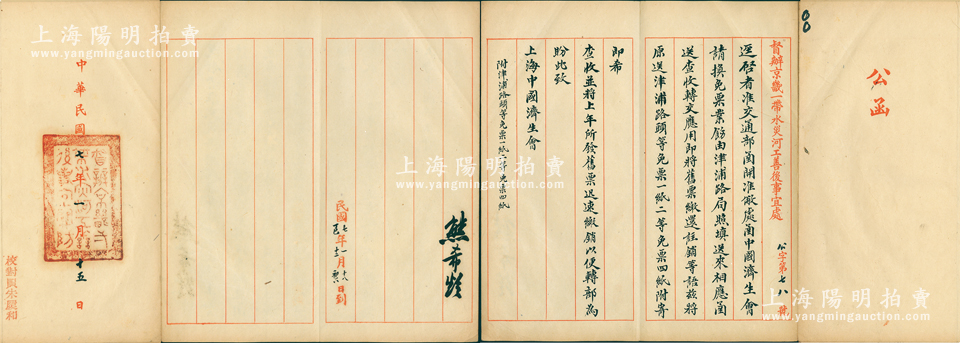 公函
督辦京畿一帶水災河工善後事宜處
公字第七八號
逕啓者准交通部函開准敝處函中國濟生會
請換免票業飭由津浦路局照填送來相應函
送查收轉交應用即將舊票繳還註銷等語茲將
原送津浦路頭等免票一紙二等免票四紙附寄
即希
查收並將上年所發舊票迅速繳銷以便轉部爲
盼此致
上海中國濟生會
附津浦路頭等免票一紙二等免票四紙
熊希齡
民國七年一月十八日到
中華民國七年一月十五日
校對員朱履和
上海陽明拍賣
www.yangmingauction.com
上海陽明拍賣
www.yangmingauction.com
上海陽明拍賣
www.yangmingauction.com
上海陽明拍賣
www.yangmingauction.com